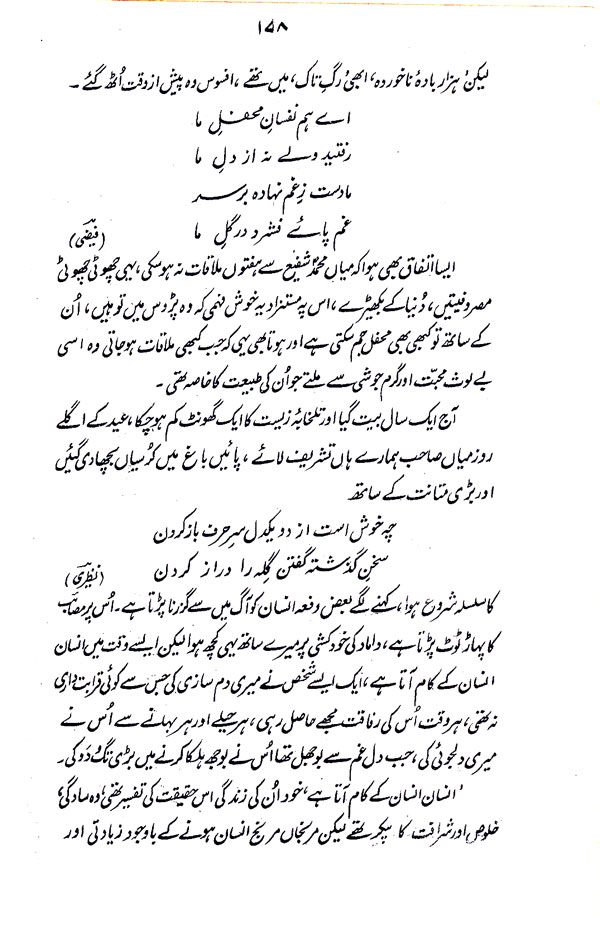 ۱۷۸
لیکن ہزار بادۂ ناخوردہ، ابھی رگِ تاک، میں تھے، افسوس وہ پیش از وقت اُٹھ گئے ۔
اے ہم نفسانِ محفلِ ما
رفتید ولے نہ از دلِ ما
مادست زغم نہادہ برسر
غم پائے فشرد در گلِ ما (فیضی)
ایسا اتفاق بھی ہوا کہ میاں محمد شفیع سے ہفتوں ملاقات نہ ہو سکی، یہی چھوٹی چھوٹی
مصروفیتیں، دُنیا کے بکھیڑے، اس پہ مستزاد یہ خوش فہمی کہ وہ پڑوس میں تو ہیں، اُن
کے ساتھ تو کبھی بھی محفل جم سکتی ہے اور ہوتا بھی یہی کہ جب کبھی ملاقات ہو جاتی وہ اسی
بے لوث محبّت اور گرم جوشی سے ملتے جو اُن کی طبیعت کا خاصہ تھی ۔
آج ایک سال بیت گیا اور تلخابۂ زیست کا ایک گھونٹ کم ہو چکا، عید کے اگلے
روز میاں صاحب ہمارے ہاں تشریف لائے، پائیں باغ میں کرسیاں بچھا دی گئیں
اور بڑی متانت کے ساتھ
چہ خوش است از دو یکدل سرِ حرف باز کردن
سخنِ گذشتہ گفتن گِلہ را دراز کردن (نظیری)
کا سلسلہ شروع ہوا، کہنے لگے بعض دفعہ انسان کو آگ میں سے گزرنا پڑتا ہے۔ اُس پر مصائب
کا پہاڑ ٹوٹ پڑتا ہے، داماد کی خودکشی پر میرے ساتھ یہی کچھ ہوا لیکن ایسے وقت میں انسان
انسان کے کام آتا ہے، ایک ایسے شخص نے میری دم سازی کی جس سے کوئی قرابت داری
نہ تھی، ہر وقت اُس کی رفاقت مجھے حاصل رہی، ہر حیلے اور ہر بہانے سے اُس نے
میری دلجوئی کی، جب دل غم سے بوجھل تھا اُس نے بوجھ ہلکا کرنے میں بڑی تگ و دَو کی ۔
'انسان انسان کے کام آتا ہے' خود اُن کی زندگی اس حقیقت کی تفسیر تھی، وہ سادگی،
خلوص اور شرافت کا پیکر تھے لیکن مرنجاں مرنج انسان ہونے کے باوجود زیادتی اور